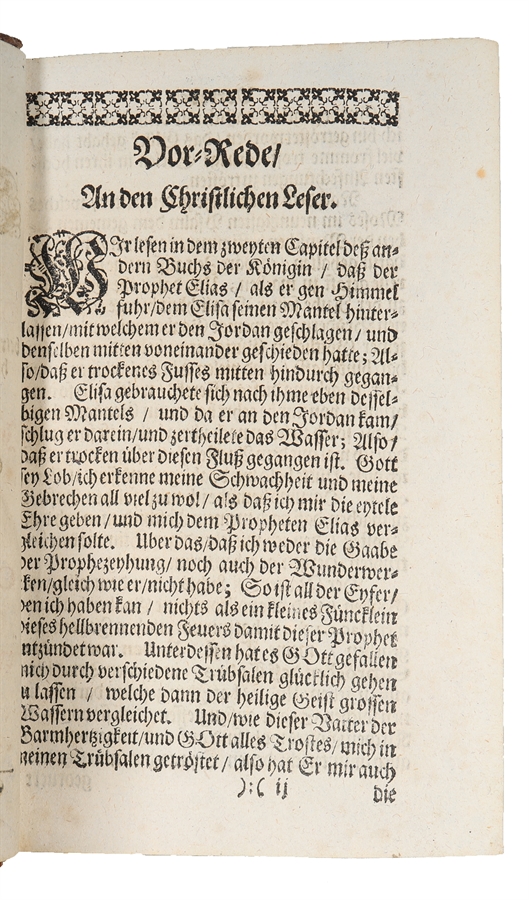 Vor-Rede/
An den Christlichen Leser.
WIr lesen in dem zweyten Capitel deß an-
dern Buchs der Königin / daß der
Prophet Elias / als er gen Himmel
fuhr/dem Elisa seinen Mantel hinter-
lassen/mit welchem er den Jordan geschlagen / und
denselben mitten voneinander geschieden hatte; Al-
so/daß er trockenes Fusses mitten hindurch gegan-
gen. Elisa gebrauchete sich nach ihme eben dessel-
bigen Mantels / und da er an den Jordan kam/
schlug er darein/und zertheilete das Wasser; Also/
daß er trocken über diesen Fluß gegangen ist. Gott
sey Lob/ich erkenne meine Schwachheit und meine
Gebrechen all viel zu wol/ als daß ich mir die eytele
Ehre geben/und mich dem Propheten Elias ver-
gleichen solte. Uber das/daß ich weder die Gaabe
der Prophezeyhung/ noch auch der Wunderwer-
cken/gleich wie er/nicht habe; So ist all der Eyfer/
den ich haben kan / nichts als ein kleines Füncklein
dieses hellbrennenden Feuers damit dieser Prophet
entzündet war. Unterdessen hat es GOtt gefallen
mich durch verschiedene Trübsalen glücklich gehen
zu lassen / welche dann der heilige Geist grossen
Wassern vergleichet. Und/wie dieser Vatter der
Barmhertzigkeit/und GOtt alles Trostes/mich in
meinen Trübsalen getröstet/also hat Er mir auch
):( ij
die